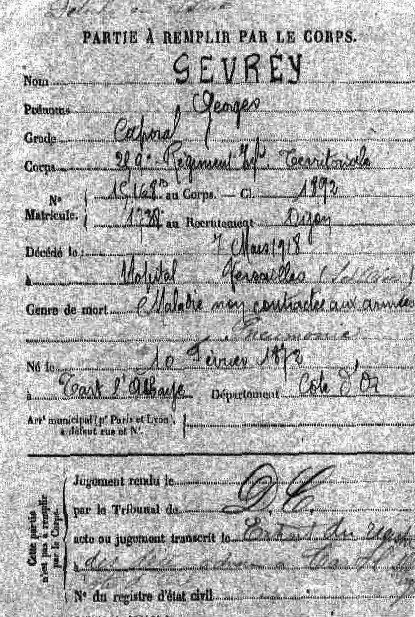 PARTIE À REMPLIR PAR LE CORPS.
Nom SEVREY
Prénoms Georges
Grade Caporal
Corps Régiment Territoriale
N° au Corps. — Cl. 1892
Matricule. au Recrutement Dijon
Décédé le 7 Mars 1918
à Hôpital Versailles
Genre de mort Maladie non contractée aux armées
Né le 10 Février 1872
à Tart l'Abbaye Département Côte d'Or
Arr^t municipal (p^r Paris et Lyon),
à défaut rue et N°.
Cette partie
n'est pas à remplir
par le Corps.
Jugement rendu le
par le Tribunal de D.C.
acte ou jugement transcrit le
à
N° du registre d'état civil